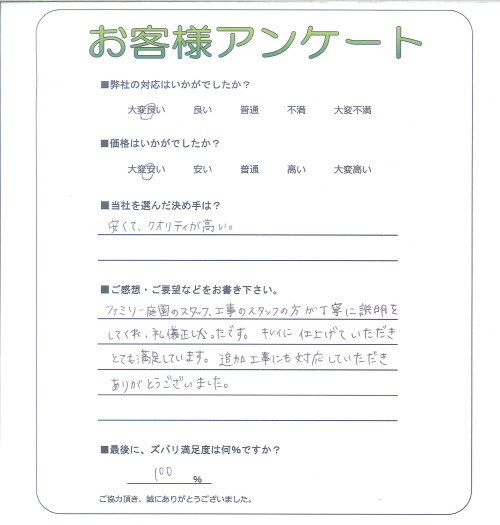 お客様アンケート
■弊社の対応はいかがでしたか？
大変良い 良い 普通 不満 大変不満
■価格はいかがでしたか？
大変安い 安い 普通 高い 大変高い
■当社を選んだ決め手は？
安くて、クオリティが高い。
■ご感想・ご要望などをお書き下さい。
ファミリー庭園のスタッフ、工事のスタッフの方が丁寧に説明を
してくれ、礼儀正しかったです。キレイに仕上げていただき
とても満足しています。追加工事にも対応していただき
ありがとうございました。
■最後に、ズバリ満足度は何％ですか？
100 ％
ご協力頂き、誠にありがとうございました。